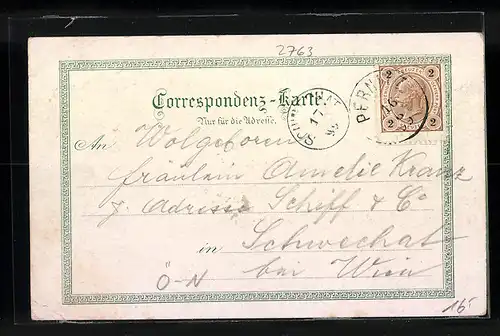 2763
Correspondenz-Karte.
Nur für die Adresse.
2 2
2 2
PERN
16
SCHWECHAT
17
An Wolgeboren
Fräulein Amelie Kranz
z. Adresse Schiff & Co
in Schwechat
bei Wien
Ö-N
16-